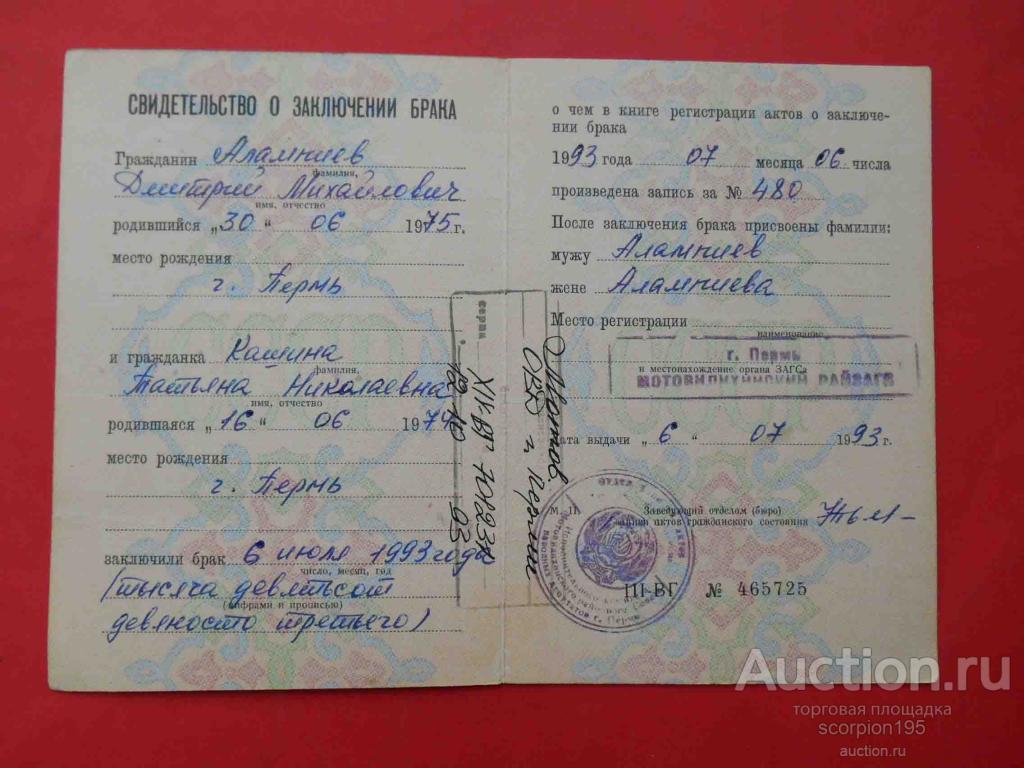 СВИДЕТЕЛЬСТВО О ЗАКЛЮЧЕНИИ БРАКА
Гражданин Аламниев
фамилия,
Дмитрий Михайлович
имя, отчество
родившийся „30“ 06 1975 г.
место рождения
г. Пермь
и гражданка Кашина
фамилия,
Татьяна Николаевна
имя, отчество
родившаяся „16“ 06 1974
место рождения
г. Пермь
заключили брак 6 июля 1993 года
число, месяц, год
(тысяча девятьсот
(цифрами и прописью)
девяносто третьего)
серия
XIV-ВГ
ОВД г. Перми
о чем в книге регистрации актов о заключе-
нии брака
1993 года 07 месяца 06 числа
произведена запись за № 480
После заключения брака присвоены фамилии:
мужу Аламниев
жене Аламниева
Место регистрации
наименование
г. Пермь
и местонахождение органа ЗАГСа
МОТОВИЛИХИНСКИЙ РАЙЗАГС
Дата выдачи „6“ 07 1993 г.
М. П.
Заведующий отделом (бюро)
записи актов гражданского состояния
III-ВГ № 465725
Auction.ru
торговая площадка
scorpion195
auction.ru